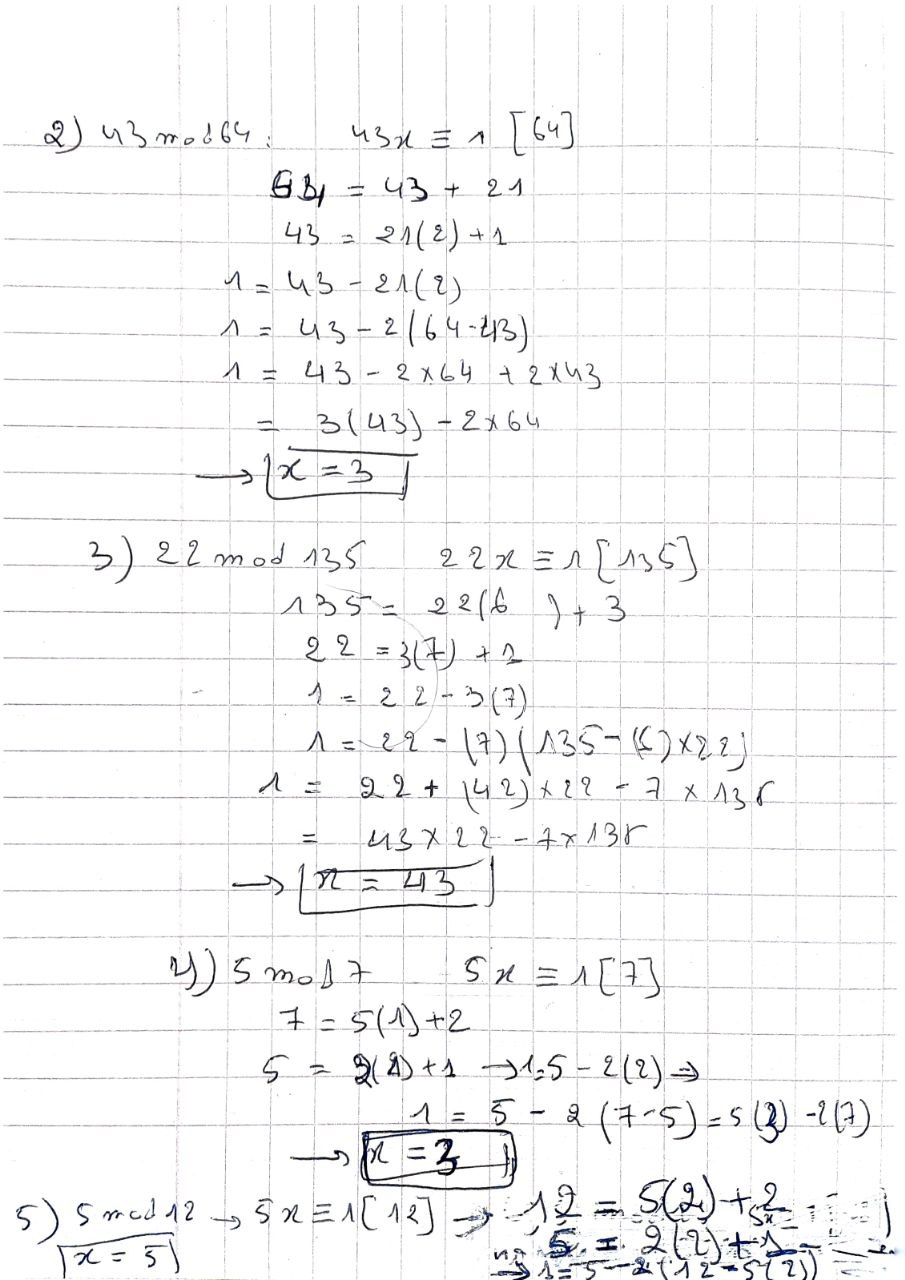 2) 43 mod 64 : 43x ≡ 1 [64]
64 = 43 + 21
43 = 21(2) + 1
1 = 43 - 21(2)
1 = 43 - 2(64-43)
1 = 43 - 2×64 + 2×43
= 3(43) - 2×64
→ x = 3
3) 22 mod 135 22x ≡ 1 [135]
135 = 22(6 ) + 3
22 = 3(7) + 1
1 = 22 - 3(7)
1 = 22 - (7)(135 - (6)×22)
1 = 22 + (42)×22 - 7 × 135
= 43×22 - 7×135
→ x = 43
4) 5 mod 7 5x ≡ 1 [7]
7 = 5(1) + 2
5 = 2(2) + 1 → 1=5 - 2(2) ⇒
1 = 5 - 2(7-5) = 5(3) - 2(7)
→ x = 3
5) 5 mod 12 → 5x ≡ 1 [12] → 12 = 5(2) + 2
5 = 2(2) + 1
x = 5 → 1 = 5 - 2(12 - 5(2))